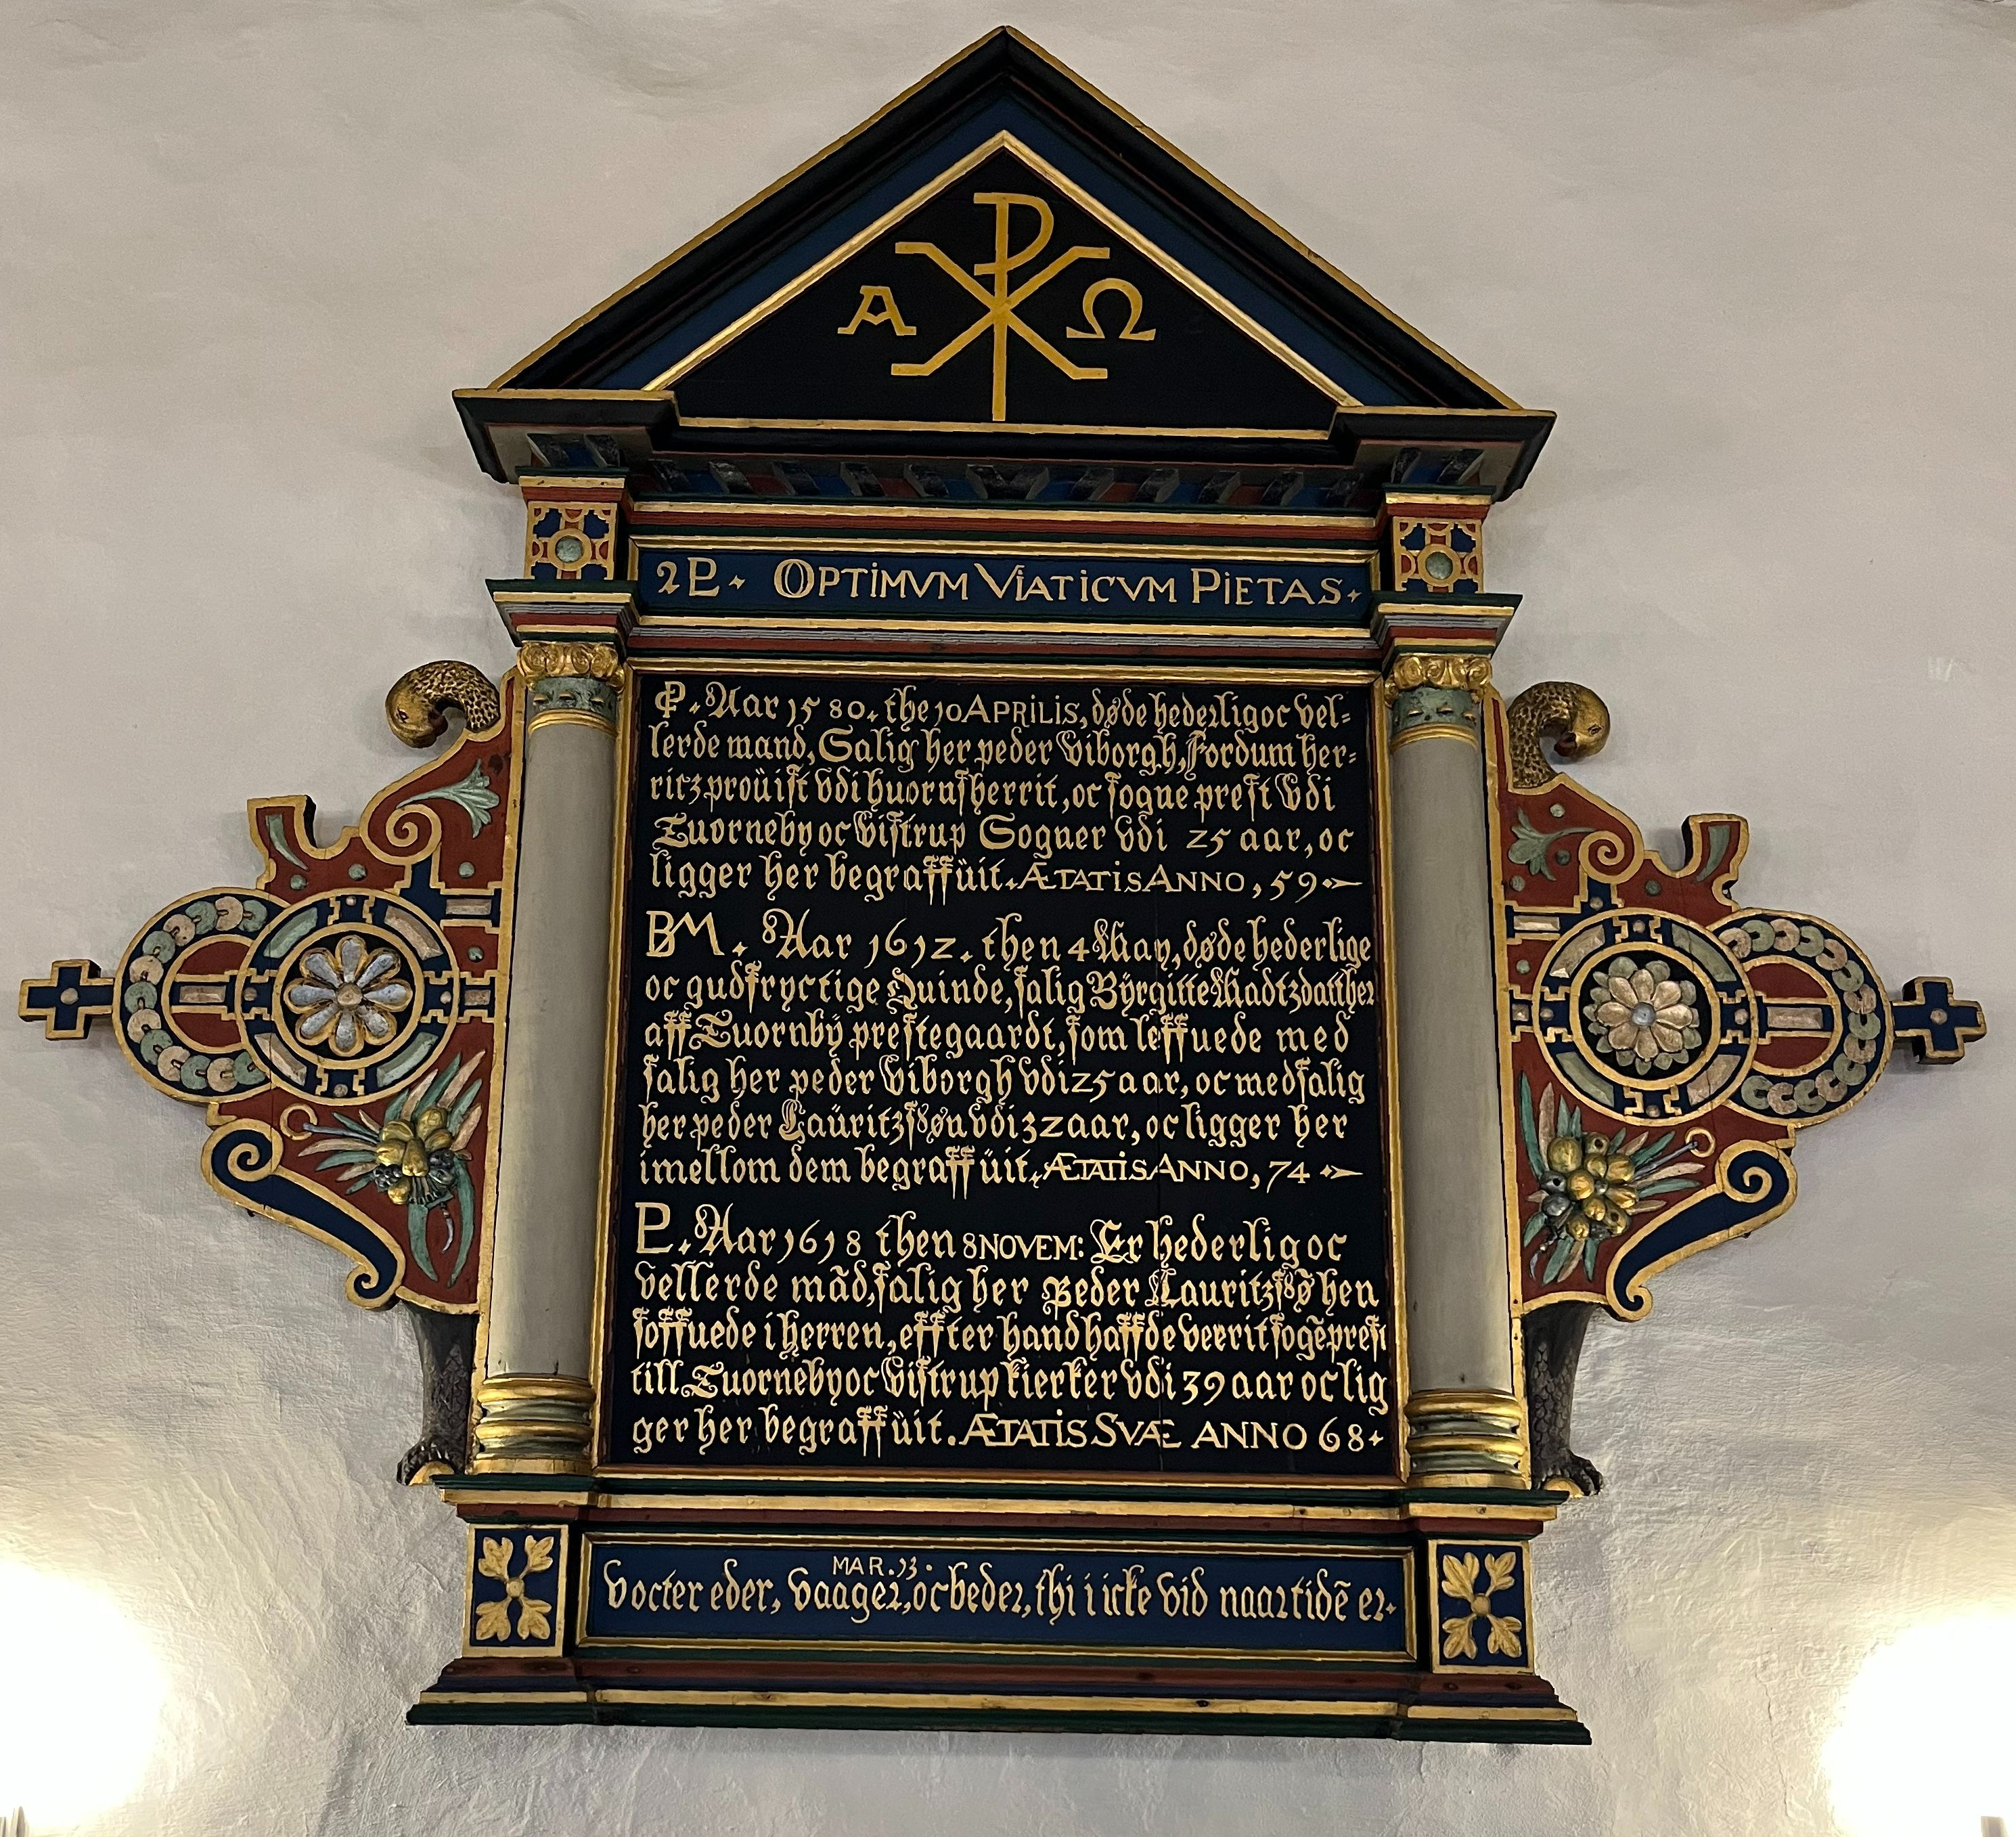 Α ☧ Ω
2P. OPTIMVM VIATICVM PIETAS.
P. Aar 1580. the 10 APRILIS, døde hederlig oc vel=
lerde mand, Salig her peder Viborgh, Fordum her=
ritz proüist vdi huornsherrit, oc sogne prest Vdi
Tuorneby oc Vistrup Sogner vdi 25 aar, oc
ligger her begraffüit. ÆTATIS ANNO, 59
BM. Aar 1612. then 4 May, døde hederlige
oc gudfryctige Quinde, salig Bÿrgitte Madtzdatther
aff Tuornbÿ prestegaardt, som leffuede med
salig her peder Viborgh vdi 25 aar, oc med salig
her peder Laüritzsøn vdi 32 aar, oc ligger her
imellom dem begraffüit. ÆTATIS ANNO, 74
P. Aar 1618 then 8 NOVEM: Er hederlig oc
vellerde mãd, salig her Peder Lauritzsø̃ hen
soffuede i herren, effter hand haffde veerit sogẽprest
till Tuorneby oc Vistrup kierker vdi 39 aar oc lig
ger her begraffüit. ÆTATIS SVÆ ANNO 68
MAR. 13.
Vocter eder, Vaager, oc beder, thi i icke vid naar tidẽ er.